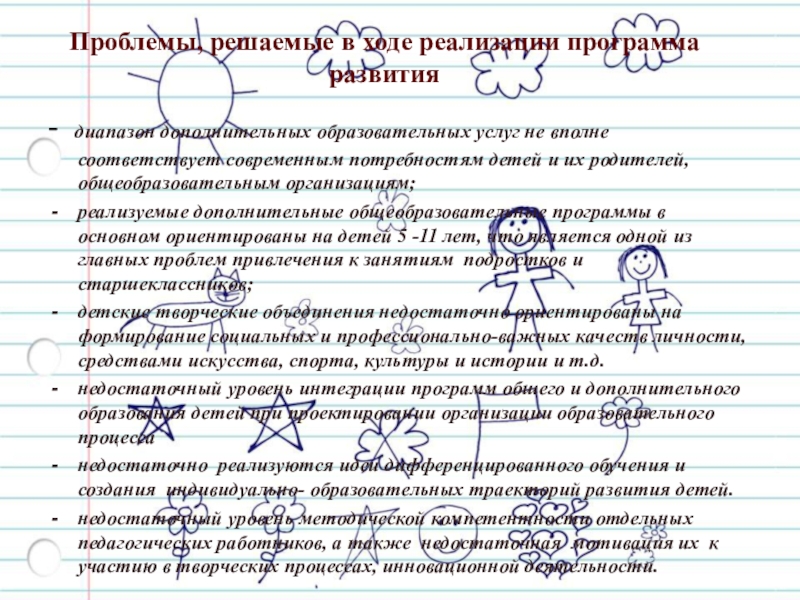 Проблемы, решаемые в ходе реализации программа
развития
- диапазон дополнительных образовательных услуг не вполне
соответствует современным потребностям детей и их родителей,
общеобразовательным организациям;
- реализуемые дополнительные общеобразовательные программы в
основном ориентированы на детей 5 -11 лет, что является одной из
главных проблем привлечения к занятиям подростков и
старшеклассников;
- детские творческие объединения недостаточно ориентированы на
формирование социальных и профессионально-важных качеств личности,
средствами искусства, спорта, культуры и истории и т.д.
- недостаточный уровень интеграции программ общего и дополнительного
образования детей при проектировании организации образовательного
процесса
- недостаточно реализуются идеи дифференцированного обучения и
создания индивидуально- образовательных траекторий развития детей.
- недостаточный уровень методической компетентности отдельных
педагогических работников, а также недостаточная мотивация их к
участию в творческих процессах, инновационной деятельности.